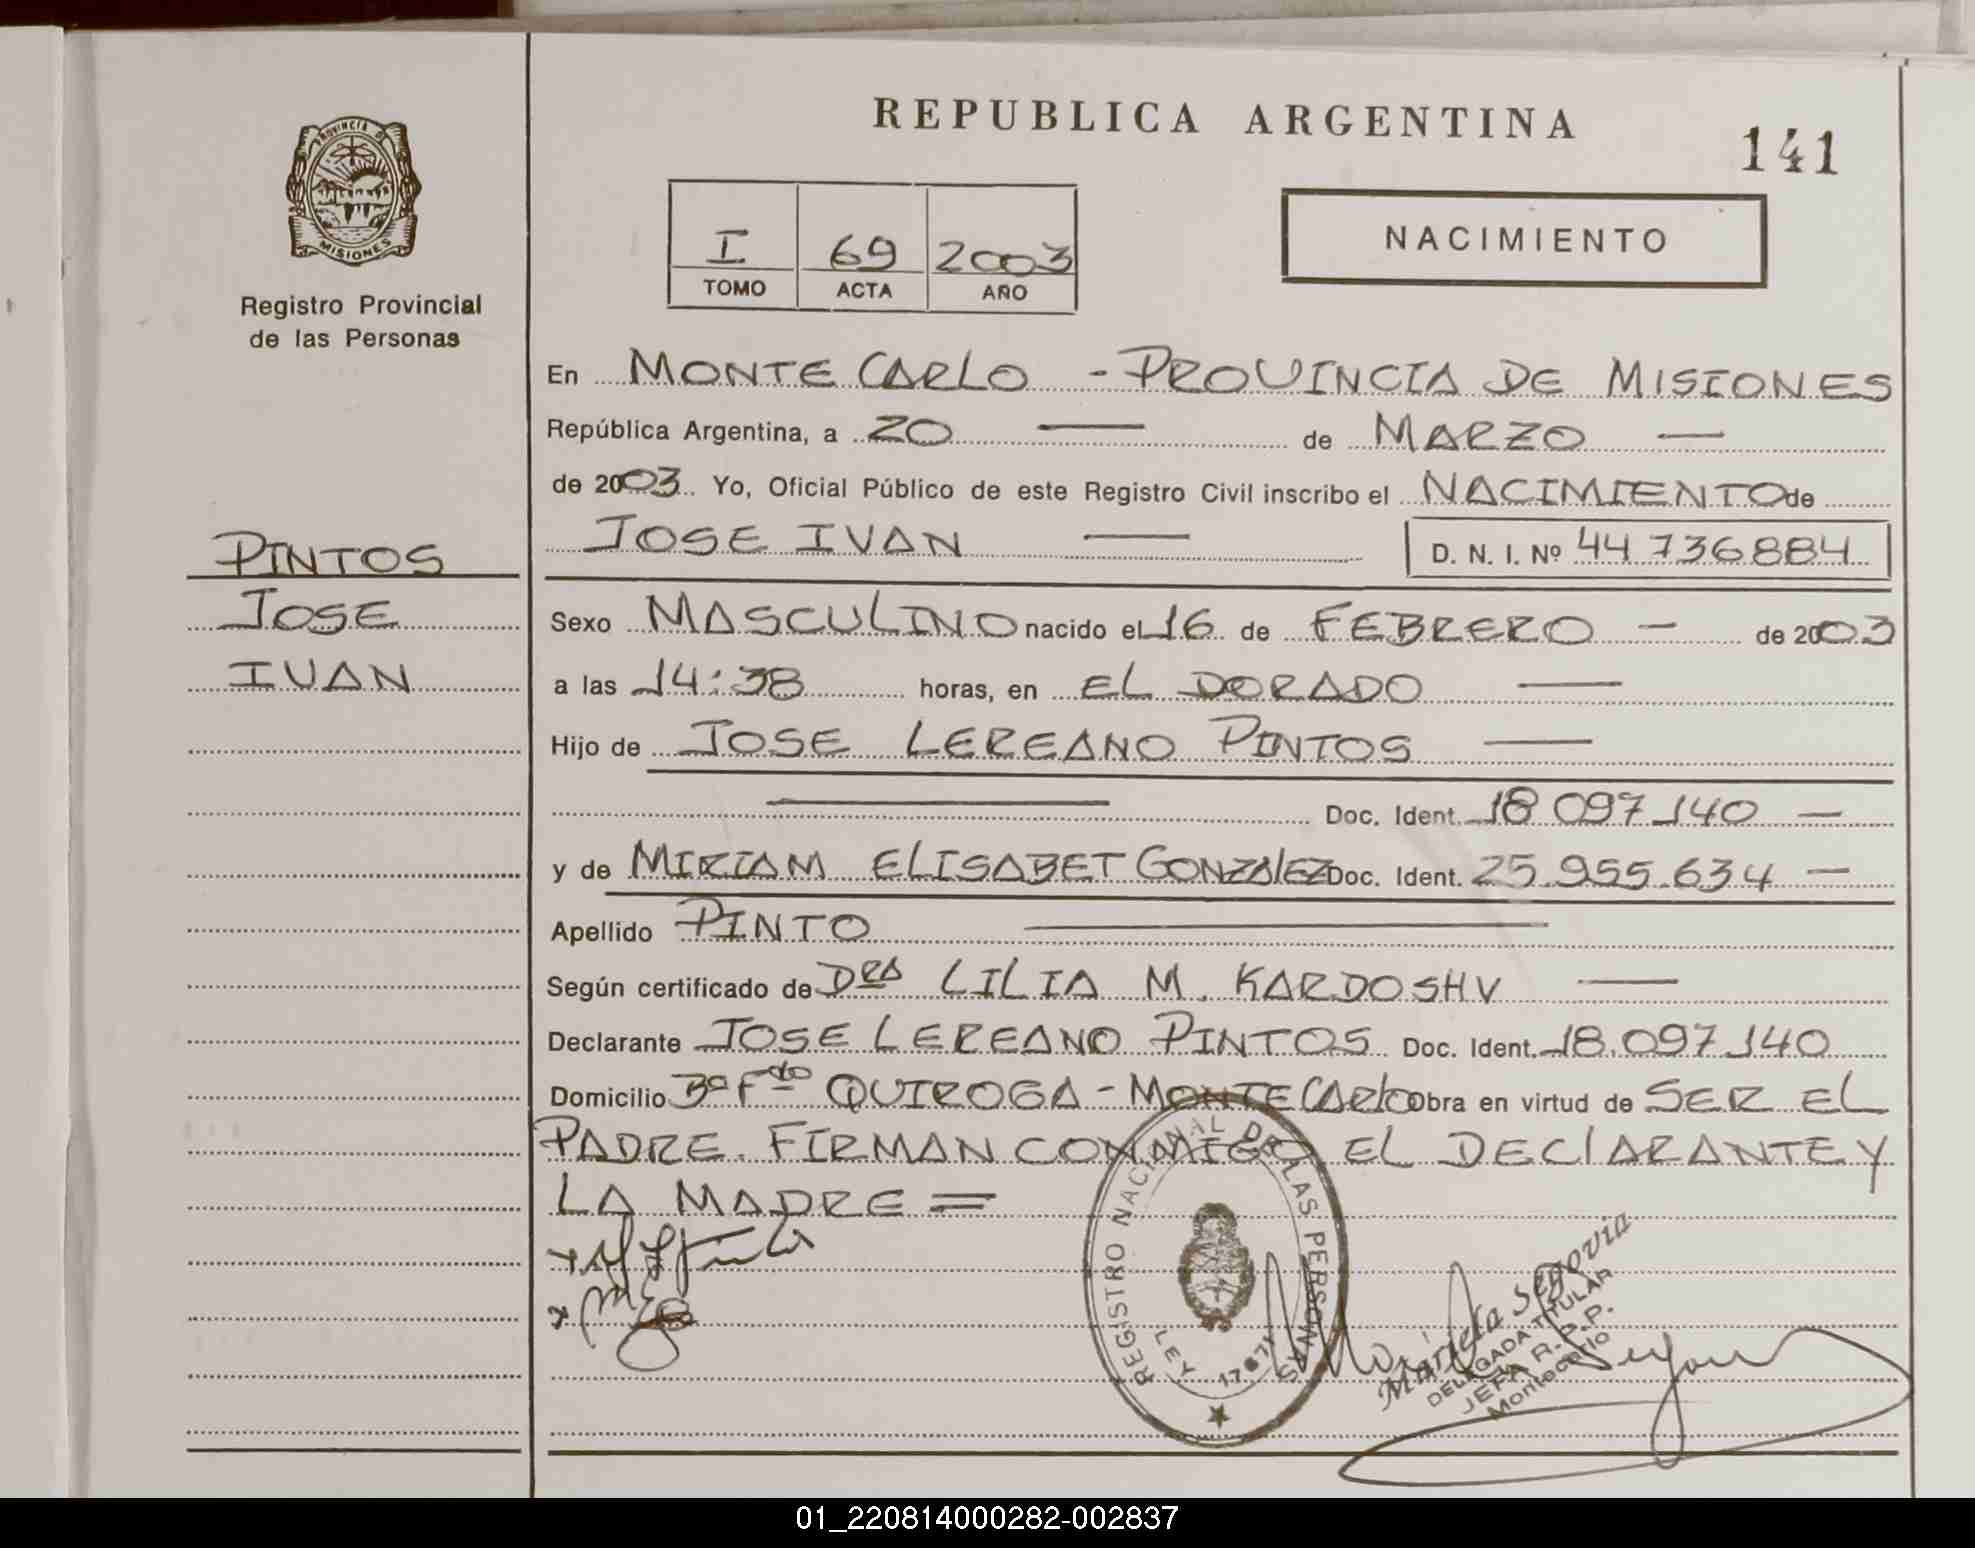 REPUBLICA ARGENTINA
141
PROVINCIA DE
MISIONES
Registro Provincial
de las Personas
I 69 2003
TOMO ACTA AÑO
NACIMIENTO
En MONTE CARLO - PROVINCIA DE MISIONES
República Argentina, a 20 — de MARZO —
de 2003. Yo, Oficial Público de este Registro Civil inscribo el NACIMIENTO de
JOSE IVAN — D. N. I. Nº 44.736.884
PINTOS
JOSE
IVAN
Sexo MASCULINO nacido el 16 de FEBRERO — de 2003
a las 14:38 horas, en EL DORADO —
Hijo de JOSE LEREANO PINTOS —
Doc. Ident. 18.097.140 —
y de MIRIAM ELISABET GONZALEZ Doc. Ident. 25.955.634 —
Apellido PINTO —
Según certificado de Dra LILIA M. KARDOSHV —
Declarante JOSE LEREANO PINTOS Doc. Ident. 18.097.140
Domicilio Bº Fdo QUIROGA - MONTE CARLO Obra en virtud de SER EL
PADRE. FIRMAN CONMIGO EL DECLARANTE Y
LA MADRE =
REGISTRO NACIONAL DE LAS PERSONAS
LEY 17671
Mariela Segovia
DELEGADA TITULAR
JEFA R. P. P.
Montecarlo
01_220814000282-002837